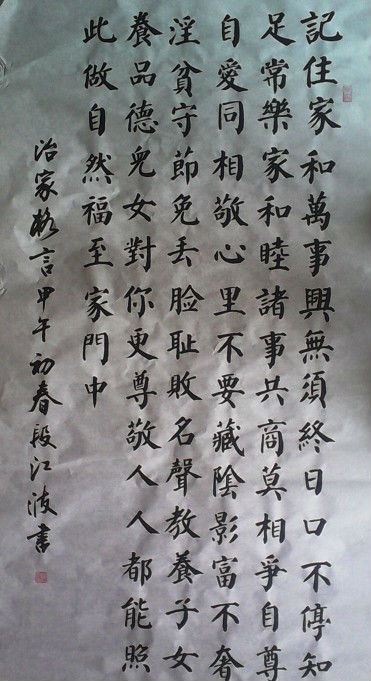 記住家和萬事興無須終日口不停知
足常樂家和睦諸事共商莫相爭自尊
自愛同相敬心里不要藏陰影富不奢
淫貧守節免丟脸耻敗名聲教養子女
養品德兒女對你更尊敬人人都能照
此做自然福至家門中
治家格言甲午初春段江波書